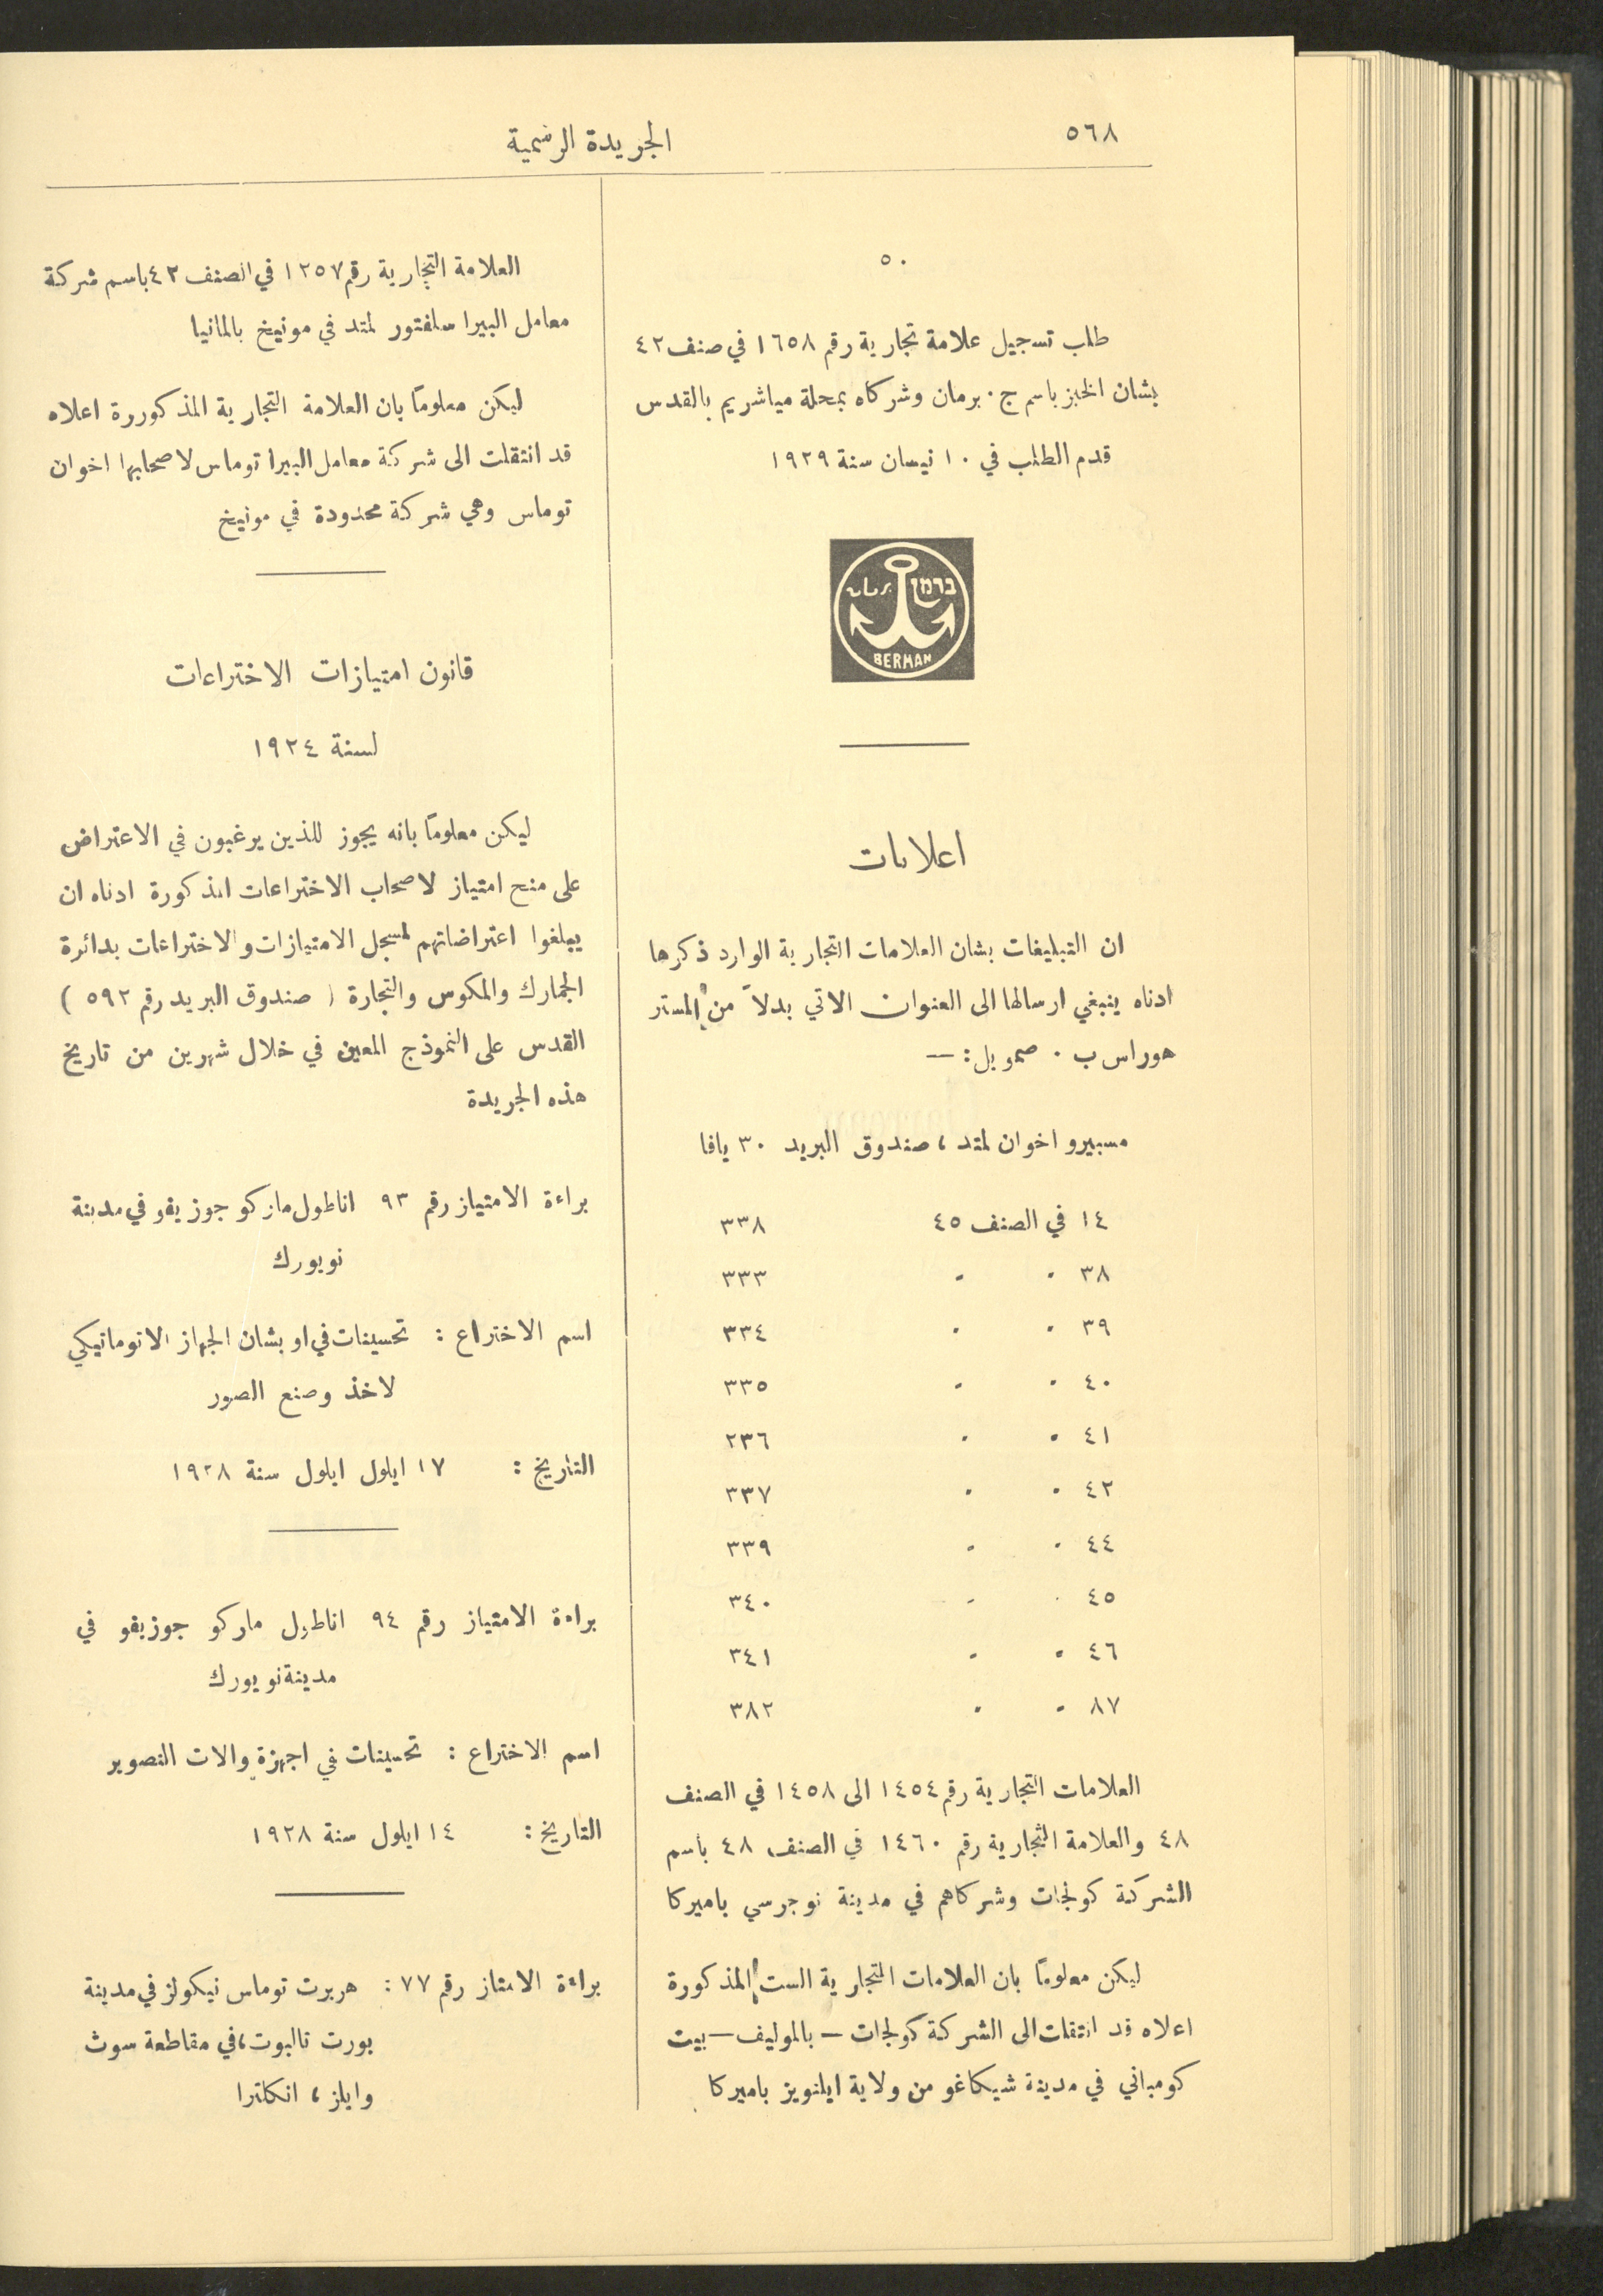 ٥٦٨
الجريدة الرسمية
٥٠
طلب تسجيل علامة تجارية رقم ١٦٥٨ في صنف ٤٢
بشان الخبز باسم ج. برمان وشركاه بمحلة مياشريم بالقدس
قدم الطلب في ١٠ نيسان سنة ١٩٢٩
ברמן
BERMAN
اعلانات
ان التبليغات بشان العلامات التجارية الوارد ذكرها
ادناه ينبغي ارسالها الى العنوان الاتي بدلاً من المستر
هوراس ب . صموبل : —
مسبيرو اخوان لمتد ، صندوق البريد ٣٠ يافا
١٤ في الصنف ٤٥ ٣٣٨
٣٨ " " ٣٣٣
٣٩ " " ٣٣٤
٤٠ " " ٣٣٥
٤١ " " ٢٣٦
٤٢ " " ٣٣٧
٤٤ " " ٣٣٩
٤٥ " " ٣٤٠
٤٦ " " ٣٤١
٨٧ " " ٣٨٢
العلامات التجارية رقم ١٤٥٤ الى ١٤٥٨ في الصنف
٤٨ والعلامة التجارية رقم ١٤٦٠ في الصنف ٤٨ باسم
الشركة كولجات وشركاهم في مدينة نوجرسي باميركا
ليكن معلوماً بان العلامات التجارية الست المذكورة
اعلاه قد انتقلت الى الشركة كولجات — بالموليف — بيت
كومباني في مدينة شيكاغو من ولاية ايلنويز باميركا
العلامة التجارية رقم ١٢٥٧ في الصنف ٤٣ باسم شركة
معامل البيرا سلفتور لمتد في مونيخ بالمانيا
ليكن معلوماً بان العلامة التجارية المذكوررة اعلاه
قد انتقلت الى شركة معامل البيرا توماس لاصحابها اخوان
توماس وهي شركة محدودة في مونيخ
قانون امتيازات الاختراعات
لسنة ١٩٢٤
ليكن معلوماً بانه يجوز للذين يرغبون في الاعتراض
على منح امتياز لاصحاب الاختراعات المذكورة ادناه ان
يبلغوا اعتراضاتهم لمسجل الامتيازات والاختراعات بدائرة
الجمارك والمكوس والتجارة ( صندوق البريد رقم ٥٩٢ )
القدس على النموذج المعين في خلال شهرين من تاريخ
هذه الجريدة
براءة الامتياز رقم ٩٣ اناطول ماركو جوزيفو في مدينة
نويورك
اسم الاختراع : تحسينات في او بشان الجهاز الاتوماتيكي
لاخذ وصنع الصور
التاريخ : ١٧ ايلول ايلول سنة ١٩٢٨
براءة الامتياز رقم ٩٤ اناطول ماركو جوزيفو في
مدينة نويورك
اسم الاختراع : تحسينات في اجهزة والات التصوير
التاريخ : ١٤ ايلول سنة ١٩٢٨
براءة الامتاز رقم ٧٧ : هربرت توماس نيكولز في مدينة
بورت تالبوت، في مقاطعة سوث
وايلز ، انكلترا